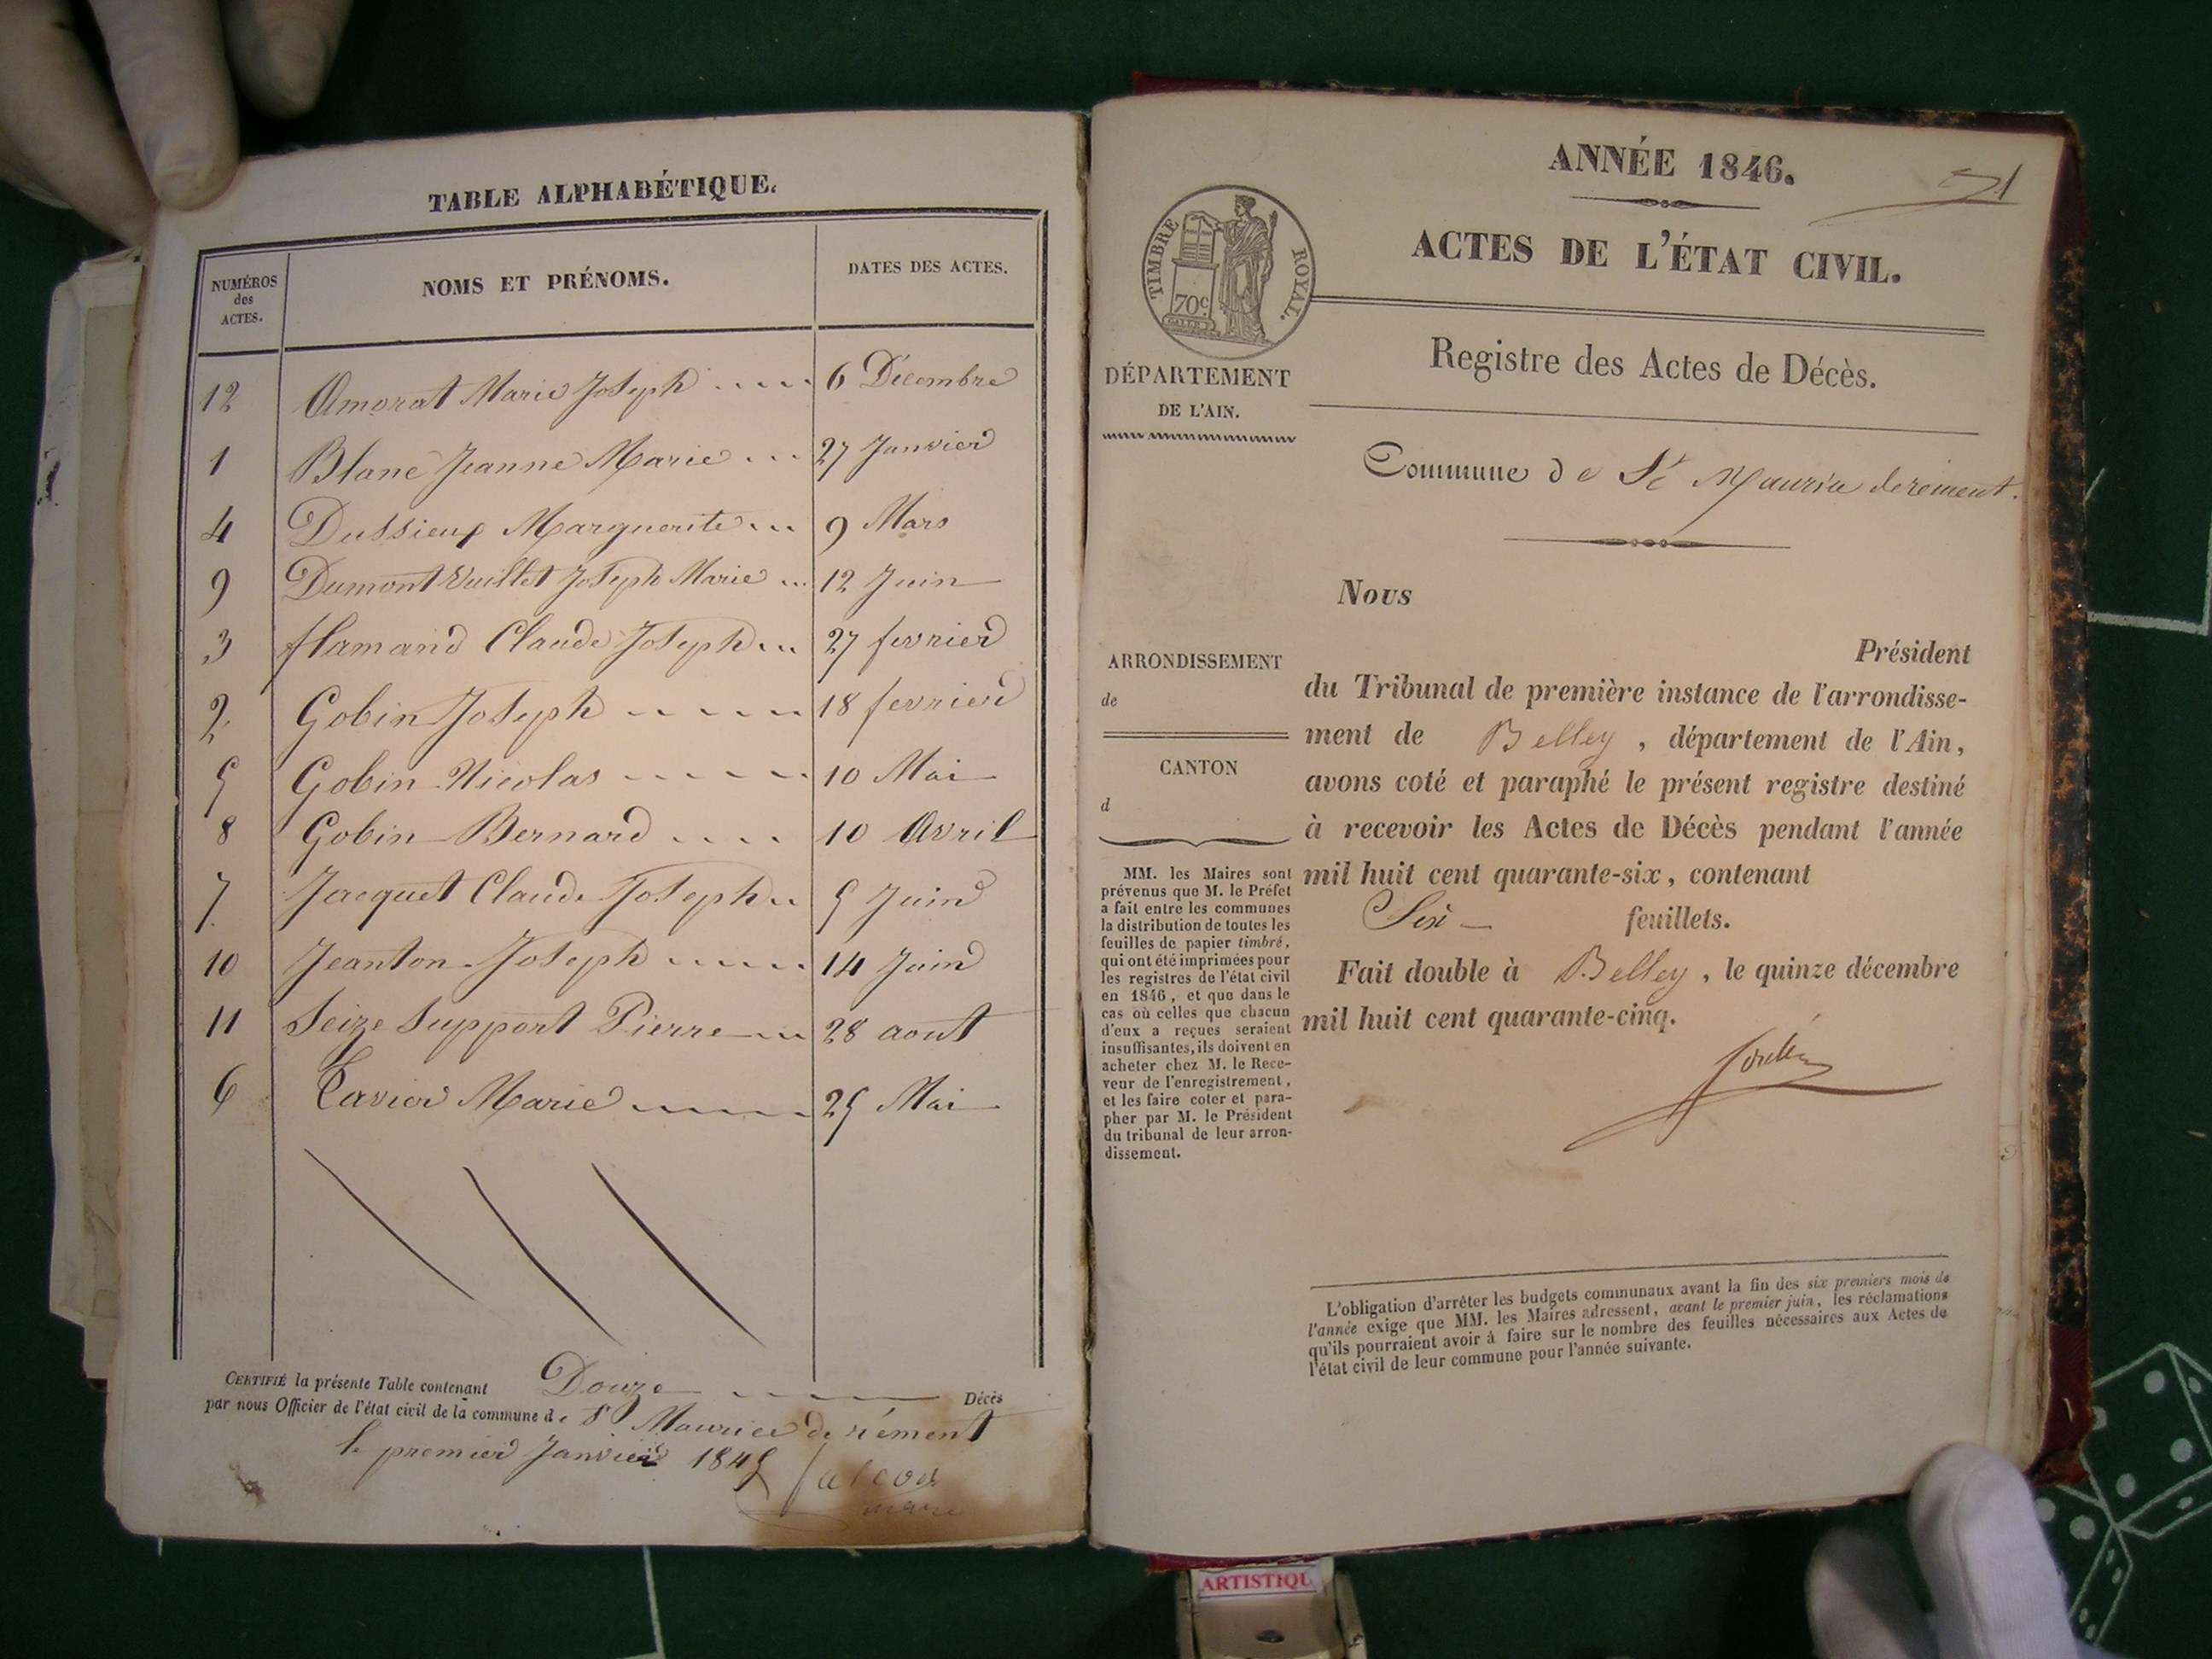 TABLE ALPHABÉTIQUE.
NUMÉROS des ACTES. NOMS ET PRÉNOMS. DATES DES ACTES.
12 Amorat Marie Joseph 6 Décembre
1 Blanc Jeanne Marie 27 Janvier
4 Dussieux Marguerite 9 Mars
9 Dumont Vuillet Joseph Marie 12 Juin
3 flamand Claude Joseph 27 fevrier
2 Gobin Joseph 18 fevrier
5 Gobin Nicolas 10 Mai
8 Gobin Bernard 10 Avril
7 Jacquet Claude Joseph 5 Juin
10 Jeanton Joseph 14 Juin
11 Seize Support Pierre 28 aout
6 Tavier Marie 25 Mai
CERTIFIÉ la présente Table contenant Douze Décès
par nous Officier de l'état civil de la commune de St Maurice de rément
le premier Janvier 1845
maire
ANNÉE 1846.
ACTES DE L'ÉTAT CIVIL.
TIMBRE ROYAL.
70c
DÉPARTEMENT
DE L'AIN.
Registre des Actes de Décès.
Commune de St Maurice derement.
ARRONDISSEMENT
de
CANTON
d
MM. les Maires sont
prévenus que M. le Préfet
a fait entre les communes
la distribution de toutes les
feuilles de papier timbré,
qui ont été imprimées pour
les registres de l'état civil
en 1846, et que dans le
cas où celles que chacun
d'eux a reçues seraient
insuffisantes, ils doivent en
acheter chez M. le Rece-
veur de l'enregistrement,
et les faire coter et para-
pher par M. le Président
du tribunal de leur arron-
dissement.
Nous
Président
du Tribunal de première instance de l'arrondisse-
ment de Belley, département de l'Ain,
avons coté et paraphé le présent registre destiné
à recevoir les Actes de Décès pendant l'année
mil huit cent quarante-six, contenant
Six feuillets.
Fait double à Belley, le quinze décembre
mil huit cent quarante-cinq.
L'obligation d'arrêter les budgets communaux avant la fin des six premiers mois de
l'année exige que MM. les Maires adressent, avant le premier juin, les réclamations
qu'ils pourraient avoir à faire sur le nombre des feuilles nécessaires aux Actes de
l'état civil de leur commune pour l'année suivante.
ARTISTIQU